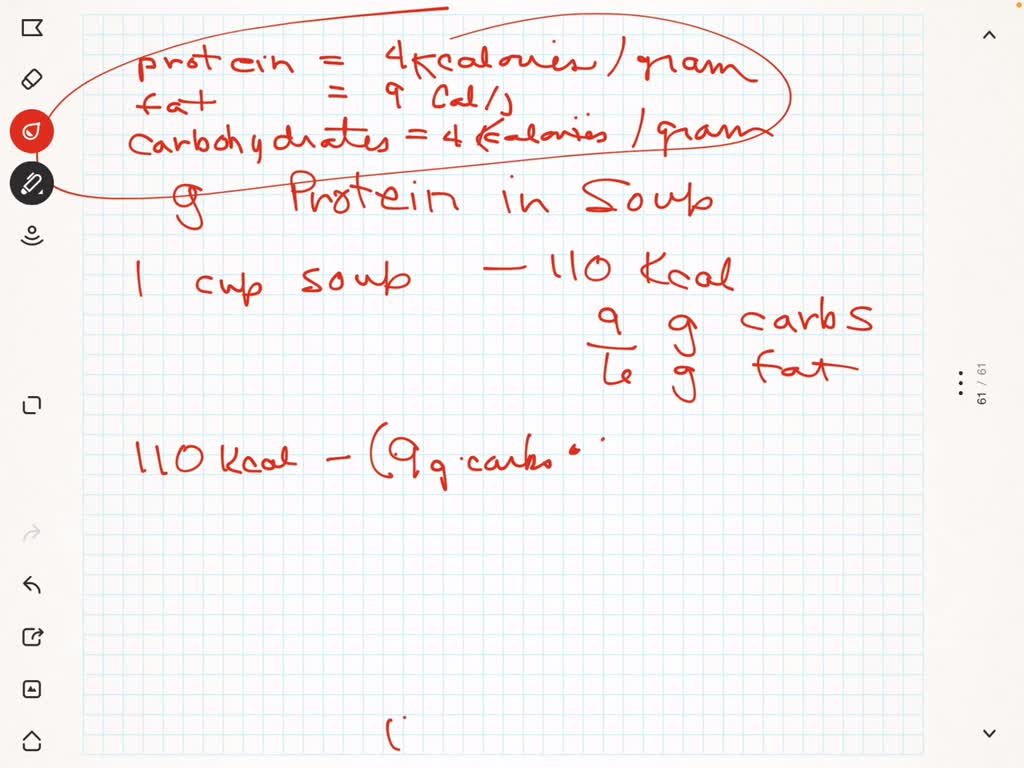 protein = 4 Kcalories / gram
fat = 9 Cal/g
carbohydrates = 4 Kcalories / gram
g Protein in Soup
1 cup soup — 110 Kcal
9 g carbs
6 g fat
110 Kcal - (9 g carbs •
(
61 / 61